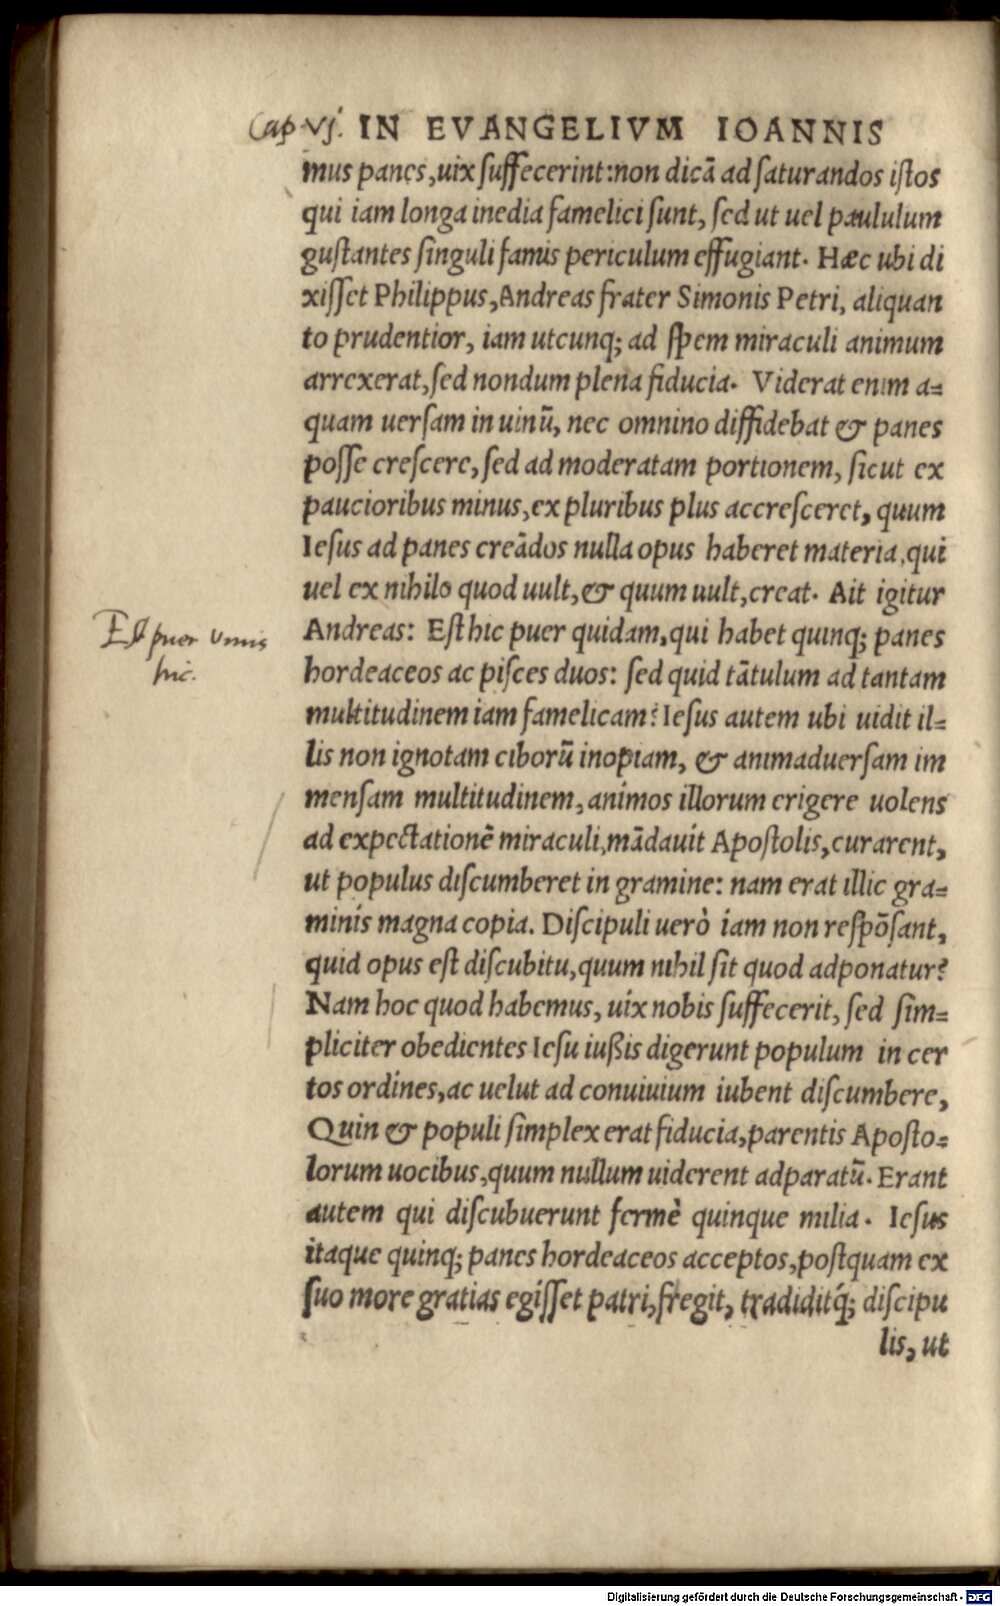 Cap. vj. IN EVANGELIVM IOANNIS
mus panes, uix ſuffecerint: non dicā ad ſaturandos iſtos
qui iam longa inedia famelici ſunt, ſed ut uel paululum
guſtantes ſinguli famis periculum effugiant. Hæc ubi di
xiſſet Philippus, Andreas frater Simonis Petri, aliquan
to prudentior, iam utcunq; ad ſpem miraculi animum
arrexerat, ſed nondum plena fiducia. Viderat enim a=
quam uerſam in uinū, nec omnino diffidebat & panes
poſſe creſcere, ſed ad moderatam portionem, ſicut ex
paucioribus minus, ex pluribus plus accreſceret, quum
Ieſus ad panes creādos nulla opus haberet materia, qui
uel ex nihilo quod uult, & quum uult, creat. Ait igitur
Eſt puer vnus
hic.
Andreas: Eſt hic puer quidam, qui habet quinq; panes
hordeaceos ac piſces duos: ſed quid tātulum ad tantam
multitudinem iam famelicam? Ieſus autem ubi uidit il=
lis non ignotam ciborū inopiam, & animaduerſam im
menſam multitudinem, animos illorum erigere uolens
ad expectationē miraculi, mādauit Apoſtolis, curarent,
ut populus diſcumberet in gramine: nam erat illic gra=
minis magna copia. Diſcipuli uerò iam non reſpōſant,
quid opus eſt diſcubitu, quum nihil ſit quod adponatur?
Nam hoc quod habemus, uix nobis ſuffecerit, ſed ſim=
pliciter obedientes Ieſu iußis digerunt populum in cer
tos ordines, ac uelut ad conuiuium iubent diſcumbere,
Quin & populi ſimplex erat fiducia, parentis Apoſto=
lorum uocibus, quum nullum uiderent adparatū. Erant
autem qui diſcubuerunt fermè quinque milia. Ieſus
itaque quinq; panes hordeaceos acceptos, poſtquam ex
ſuo more gratias egiſſet patri, fregit, tradiditq́; diſcipu
lis, ut
Digitalisierung gefördert durch die Deutsche Forschungsgemeinschaft - DFG